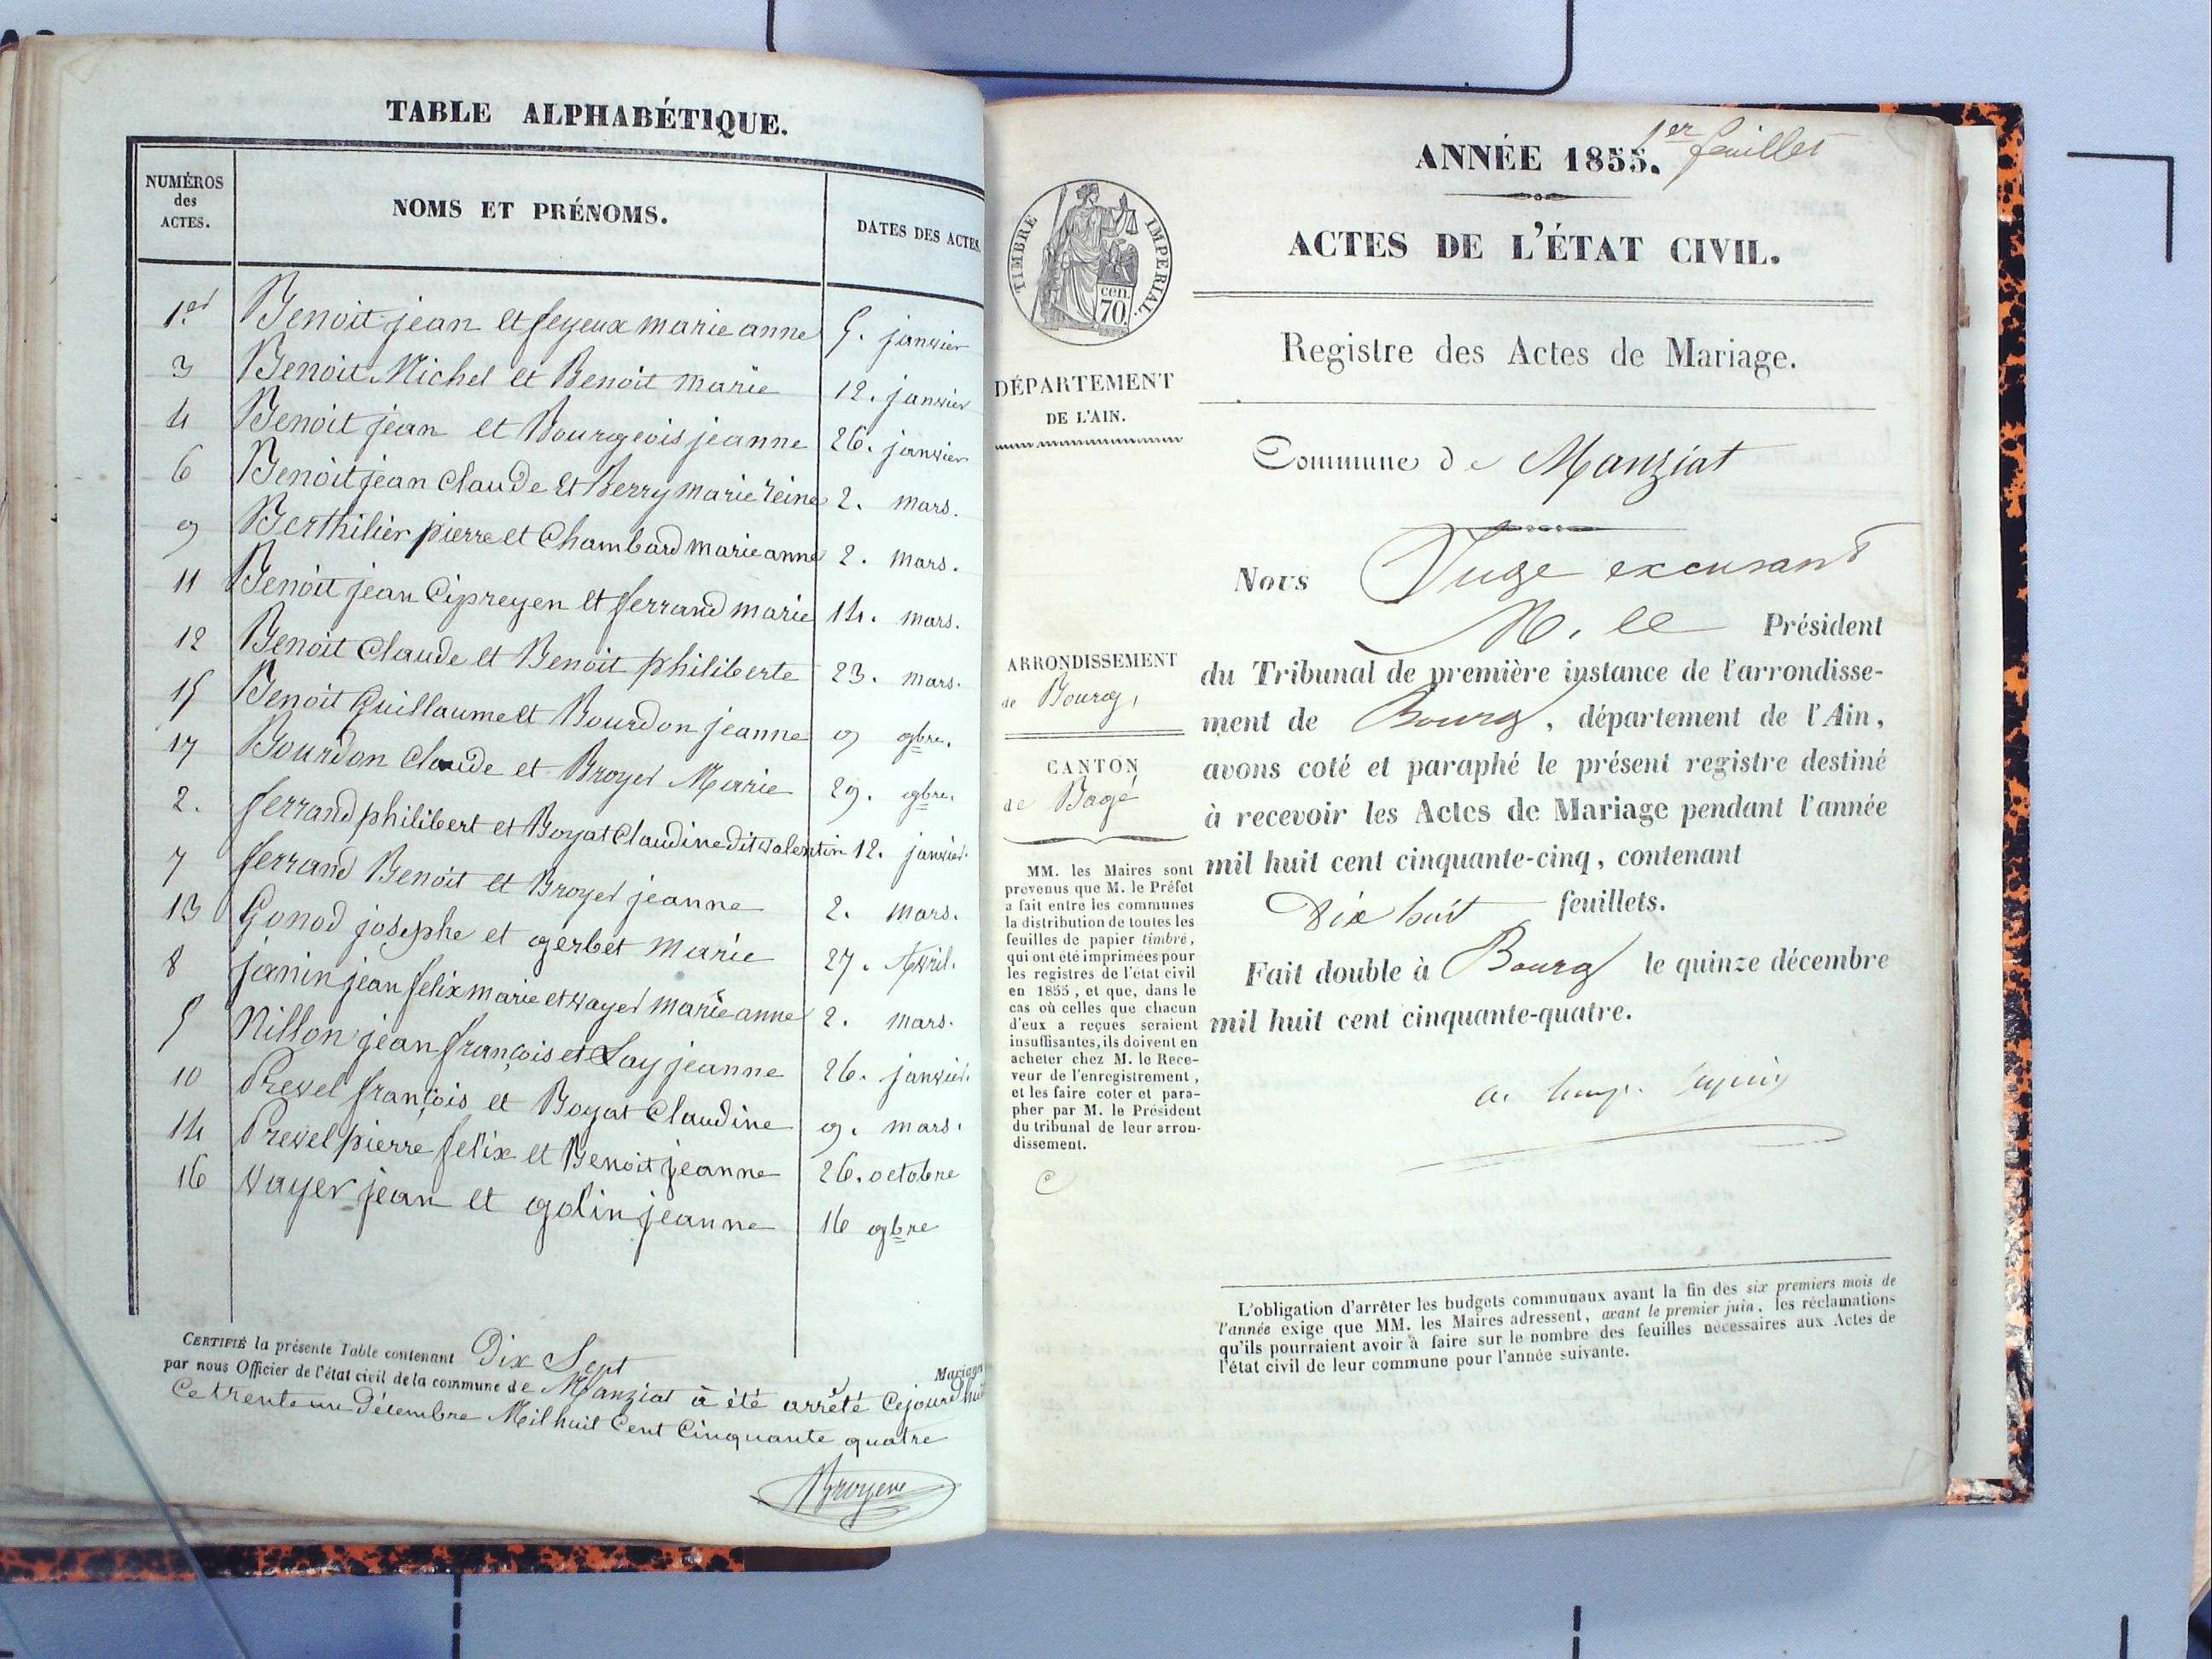 TABLE ALPHABÉTIQUE.
NUMÉROS
des
ACTES.
NOMS ET PRÉNOMS.
DATES DES ACTES.
1er Benoit jean et feyeux marie anne 5. janvier
3 Benoit Michel et Benoit marie 12. janvier
4 Benoit jean et Bourgeois jeanne 26. janvier
6 Benoit jean Claude et Berry marie reine 2. mars.
9 Berthilier pierre et Chambard marie anne 2. mars.
11 Benoit jean Cipreyen et ferrand marie 14. mars.
12 Benoit Claude et Benoit philiberte 23. mars.
15 Benoit Guillaume et Bourdon jeanne 9 9bre.
17 Bourdon Claude et Broyer Marie 29. 9bre.
2. ferrand philibert et Boyat Claudine dit valentin 12. janvier.
7 ferrand Benoit et Broyer jeanne 2. mars.
13 Gonod josephe et gerbet marie 27. Avril.
8 janin jean felix marie et vayer marie anne 2. mars.
5 Nillon jean françois et Lay jeanne 26. janvier.
10 Prevel françois et Boyat Claudine 9. mars.
14 Prevel pierre felix et Benoit jeanne 26. octobre
16 vayer jean et golin jeanne 16 9bre
CERTIFIÉ la présente Table contenant Dix Sept Mariages
par nous Officier de l'état civil de la commune de Manziat à été arrêté Cejourdhui
Ce trente un Décembre Mil huit Cent Cinquante quatre
Broyere
1er feuillet
ANNÉE 1855.
ACTES DE L'ÉTAT CIVIL.
Registre des Actes de Mariage.
TIMBRE IMPERIAL.
cen.
70.
DÉPARTEMENT
DE L'AIN.
Commune de Manziat
Nous Juge excusant
M. le Président
du Tribunal de première instance de l'arrondisse-
ment de Bourg, département de l'Ain,
avons coté et paraphé le présent registre destiné
à recevoir les Actes de Mariage pendant l'année
mil huit cent cinquante-cinq, contenant
Dix huit feuillets.
Fait double à Bourg le quinze décembre
mil huit cent cinquante-quatre.
ARRONDISSEMENT
de Bourg,
CANTON
de Bagé
MM. les Maires sont
prévenus que M. le Préfet
a fait entre les communes
la distribution de toutes les
feuilles de papier timbré,
qui ont été imprimées pour
les registres de l'état civil
en 1855, et que, dans le
cas où celles que chacun
d'eux a reçues seraient
insuffisantes, ils doivent en
acheter chez M. le Rece-
veur de l'enregistrement,
et les faire coter et para-
pher par M. le Président
du tribunal de leur arron-
dissement.
L'obligation d'arrêter les budgets communaux avant la fin des six premiers mois de
l'année exige que MM. les Maires adressent, avant le premier juin, les réclamations
qu'ils pourraient avoir à faire sur le nombre des feuilles nécessaires aux Actes de
l'état civil de leur commune pour l'année suivante.